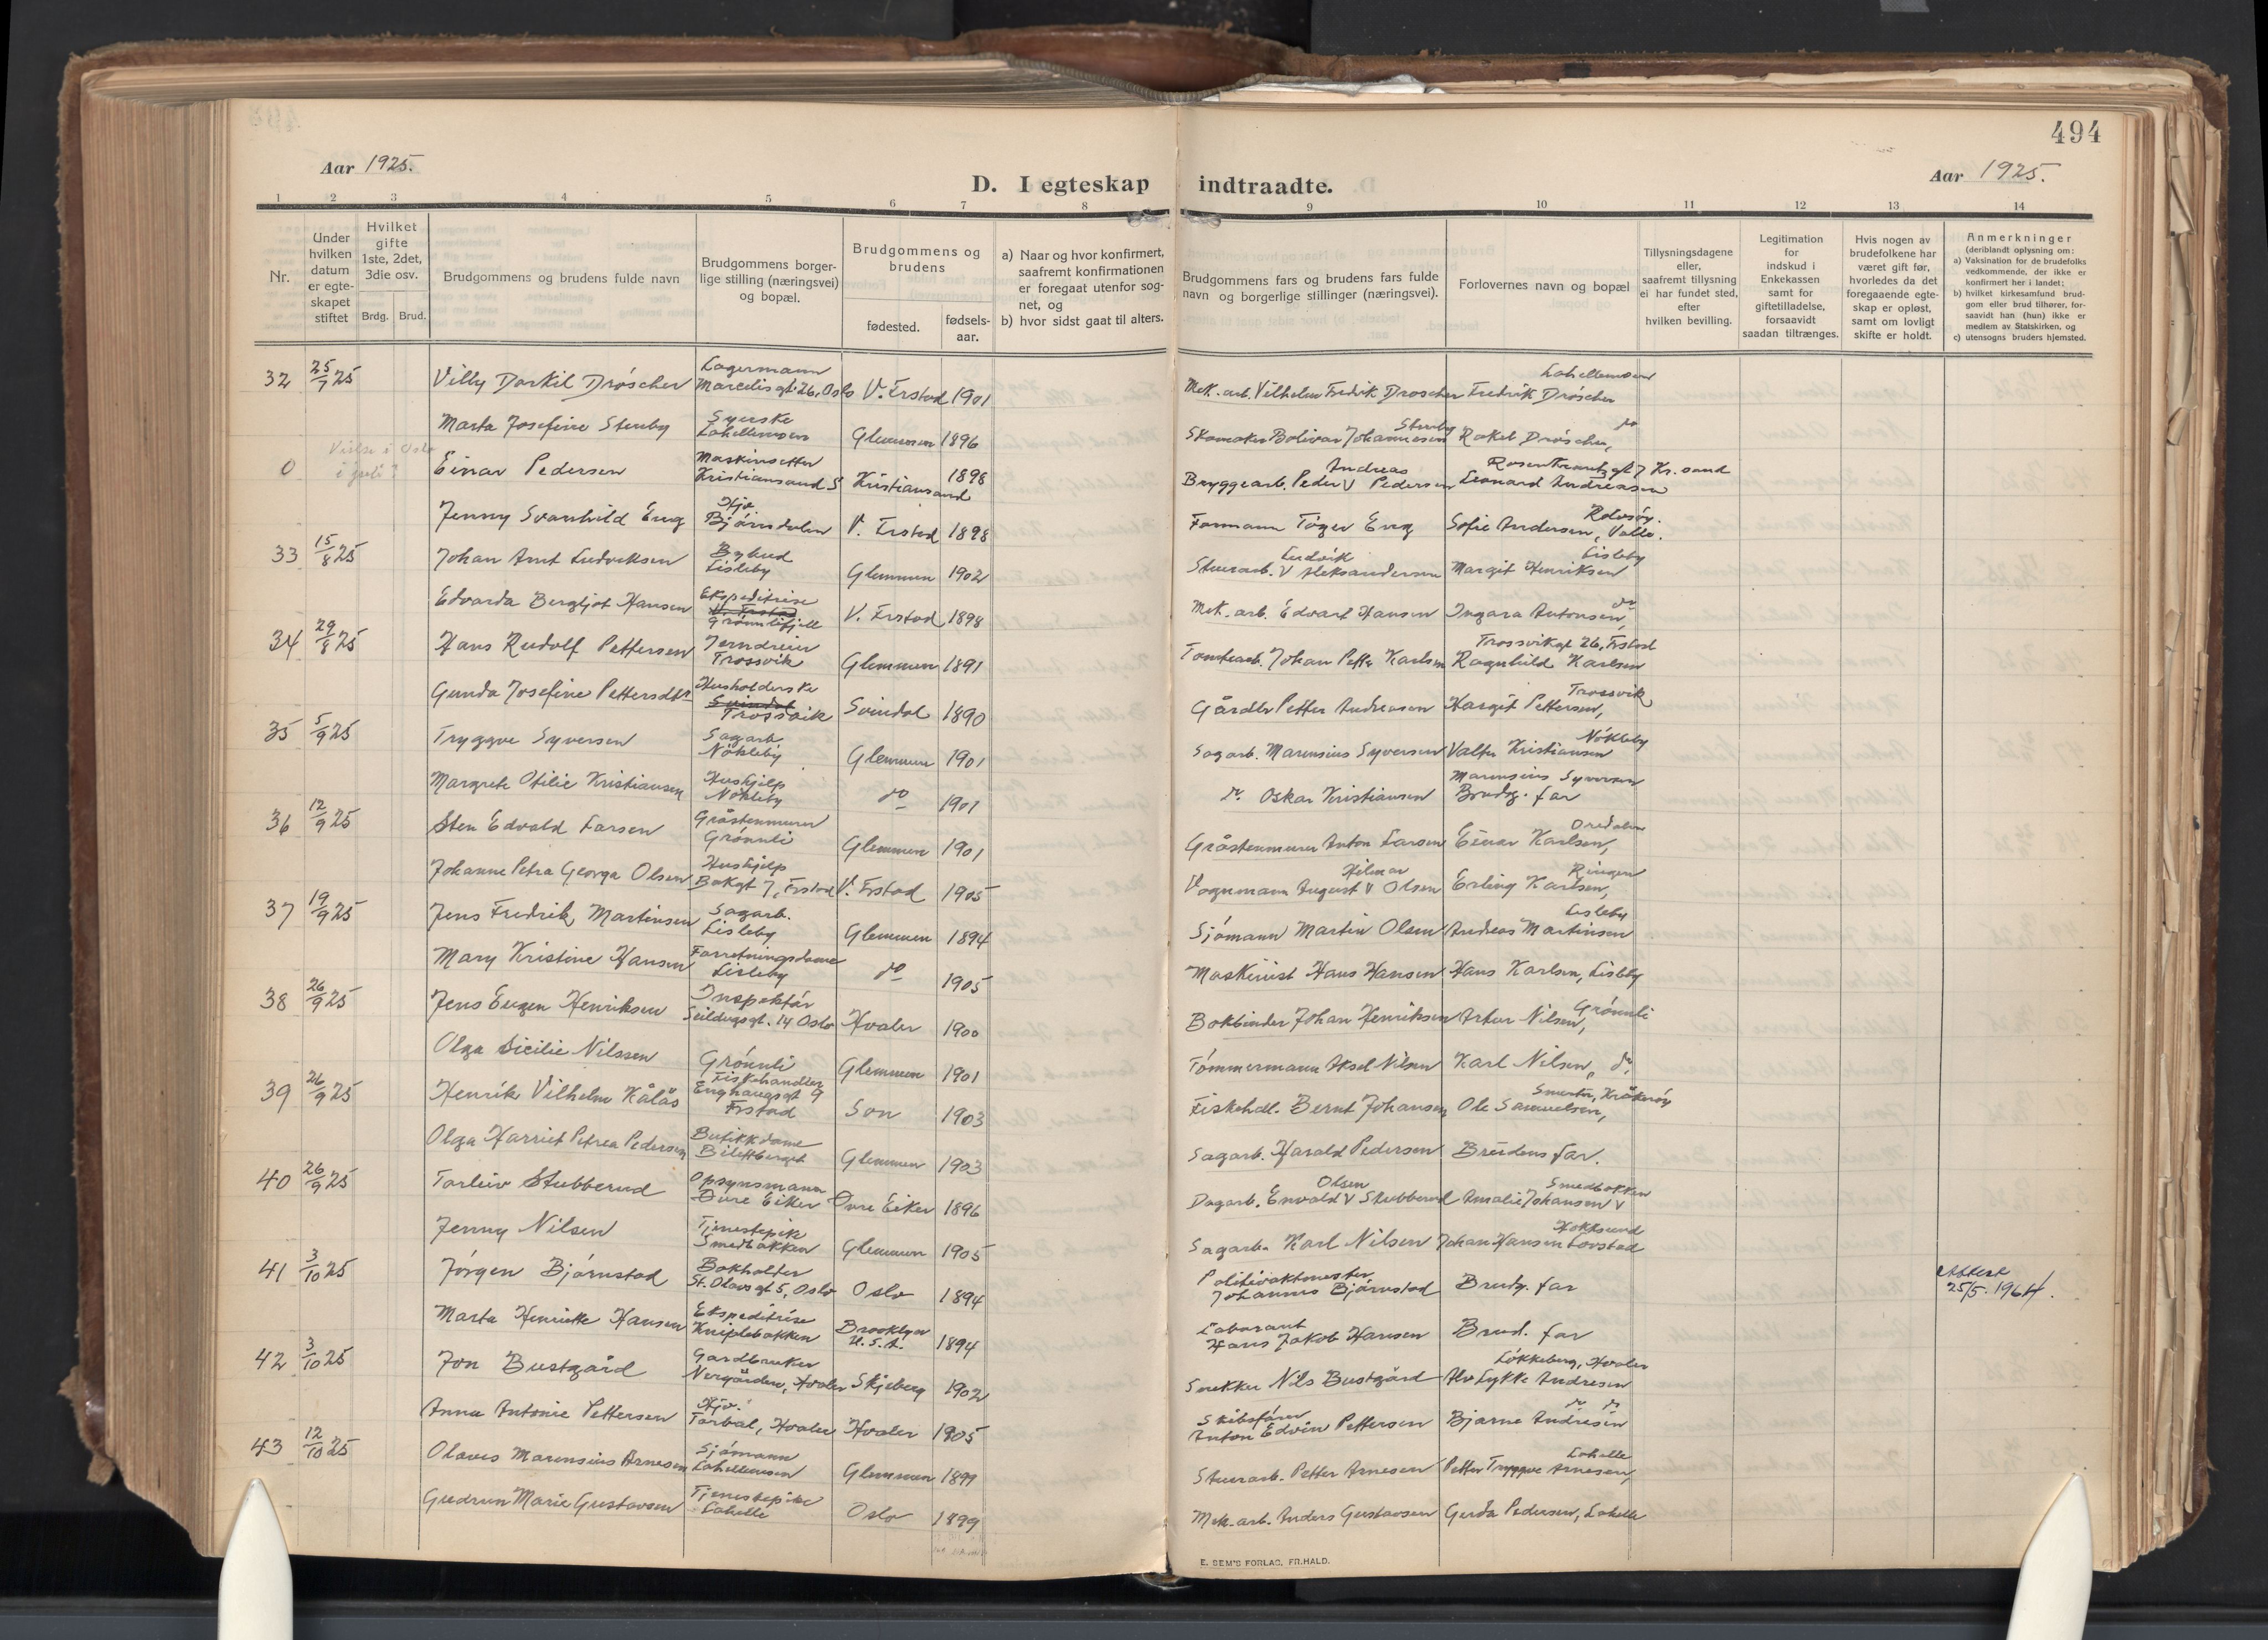 494
Aar 1925.
D. I egteskap indtraadte.
Aar 1925.
1 2 3 4 5 6 7 8 9 10 11 12 13 14
Nr.
Under hvilken datum er egte-skapet stiftet
Hvilket gifte 1ste, 2det, 3die osv.
Brdg. Brud.
Brudgommens og brudens fulde navn
Brudgommens borger-lige stilling (næringsvei) og bopæl.
Brudgommens og brudens
fødested.
fødsels-aar.
a) Naar og hvor konfirmert, saafremt konfirmationen er foregaat utenfor sog-net, og
b) hvor sidst gaat til alters.
Brudgommens fars og brudens fars fulde navn og borgerlige stillinger (næringsvei).
Forlovernes navn og bopæl
Tillysningsdagene eller, saafremt tillysning ei har fundet sted, efter hvilken bevilling.
Legitimation for indskud i Enkekassen samt for giftetilladelse, forsaavidt saadan tiltrænges.
Hvis nogen av brudefolkene har været gift før, hvorledes da det foregaaende egte-skap er opløst, samt om lovligt skifte er holdt.
Anmerkninger
(deriblandt oplysning om:
a) Vaksination for de brudefolks vedkommende, der ikke er konfirmert her i landet;
b) hvilket kirkesamfund brud-gom eller brud tilhører, for-saavidt han (hun) ikke er medlem av Statskirken, og
c) utensogns bruders hjemsted.
32 25/7 25 Villy Dorkil Dröscher Lagermann Marcelisgt. 26, Oslo V. Frstad 1901 Mek. arb. Vilhelm Fredrik Dröscher Fredrik Dröscher Lahellemoen
Marta Josefine Stenby Syerske Lahellemoen Glemmen 1896 Skomaker Bolivar Johannesen Stenby Rakel Dröscher, do
0 Vielse i Oslo i juli? Einar Pedersen Maskinsetter Kristiansand S Kristiansand 1898 Bryggearb. Peder V Andreas Pedersen Rosenkrantzgt 7 Kr. sand Leonard Andreasen
Jenny Svanhild Eng Hjv Björndalen V. Frstad 1898 Formann Töger Eng Sofie Andersen, Valle. Rolvsöy.
33 15/8 25 Johan Arnt Ludviksen Bybud Lisleby Glemmen 1902 Stuerarb. V Ludvik Aleksandersen Margit Henriksen Lisleby
Edvarda Bergljot Hansen Ekspeditrise V. Frstad Grönnlifjell V. Frstad 1898 Mek. arb. Edvart Hansen Ingara Antonsen, do
34 29/8 25 Hans Rudolf Pettersen Jerndreier Trossvik Glemmen 1891 Tomtearb. Johan Petter Karlsen Trossvikgt 26, Frstad Ragnhild Karlsen
Gunda Josefine Pettersdtr Husholderske Svindal Trossvik Svindal 1890 Gårdbr Petter Andreasen Margit Pettersen, Trossvik
35 5/9 25 Tryggve Syversen Sagarb. Nökleby Glemmen 1901 Sagarb. Marensius Syversen Valter Kristiansen Nökleby
Margrete Otilie Kristiansen Hushjelp Nökleby do 1901 do Oskar Kristiansen Marensius Syversen Brudg. far
36 12/9 25 Sten Edvald Larsen Gråstenmurer Grönnli Glemmen 1901 Gråstenmurer Anton Larsen Einar Karlsen, Oredalen
Johanne Petra Georga Olsen Hushjelp Bakgt 7, Frstad V. Frstad 1905 Vognmann August V Hilmar Olsen Erling Karlsen, Ringen
37 19/9 25 Jens Fredrik Martinsen Sagarb. Lisleby Glemmen 1894 Sjömann Martin Olsen Andreas Martinsen Lisleby
Mary Kristine Hansen Forretningsdame Lisleby do 1905 Maskinist Hans Hansen Hans Karlsen, Lisleby
38 26/9 25 Jens Eugen Henriksen Inspektör Seildugsgt. 14 Oslo Hvaler 1900 Bokbinder Johan Henriksen Artur Nilsen, Grönnli
Olga Sicilie Nilssen Grönnli Glemmen 1901 Tömmermann Aksel Nilsen Karl Nilsen, do
39 26/9 25 Henrik Vilhelm Kålås Fiskehandler Enghaugsgt 9 Frstad Son 1903 Fiskehdl. Bernt Johansen Ole Samuelsen, Smertu, Kråkeröy
Olga Harriet Petrea Pedersen Butikkdame Bilettberget Glemmen 1903 Sagarb. Harald Pedersen Brudens far.
40 26/9 25 Torleiv Stubberud Opsynsmann Övre Eiker Övre Eiker 1896 Dagarb. Envald V Olsen Stubberud Amalie Johansen V Smedbakken
Jenny Nilsen Tjenestepik Smedbakken Glemmen 1905 Sagarb. Karl Nilsen Johan Hansen Lovstad Hokksund
41 3/10 25 Jörgen Björnstad Bokholder St. Olavsgt 5, Oslo Oslo 1894 Politivaktmester Johannes Björnstad Brudg. far Attest 25/5. 1964.
Marta Henriette Hansen Ekspeditrise Kniplebakken Brooklyn U.S.A. 1894 Laborant Hans Jakob Hansen Brud. far
42 3/10 25 Jon Bustgård Gardbruker Nergården, Hvaler Skjeberg 1902 Snekker Nils Bustgård Alv Lykke Andresen Lökkeberg, Hvaler
Anna Antonie Pettersen Hjv. Torbal, Hvaler Hvaler 1905 Skibsförer Anton Edvin Pettersen Bjarne Andresen do do
43 12/10 25 Olaves Marensius Arnesen Sjömann Lahellemoen Glemmen 1899 Stuerarb. Petter Arnesen Petter Tryggve Arnesen, Lahelle
Gudrun Marie Gustavsen Tjenestepike Lahelle Oslo 1899 Mek. arb. Anders Gustavsen Gerda Pedersen, Lahelle
E. SEM'S FORLAG, FR.HALD.